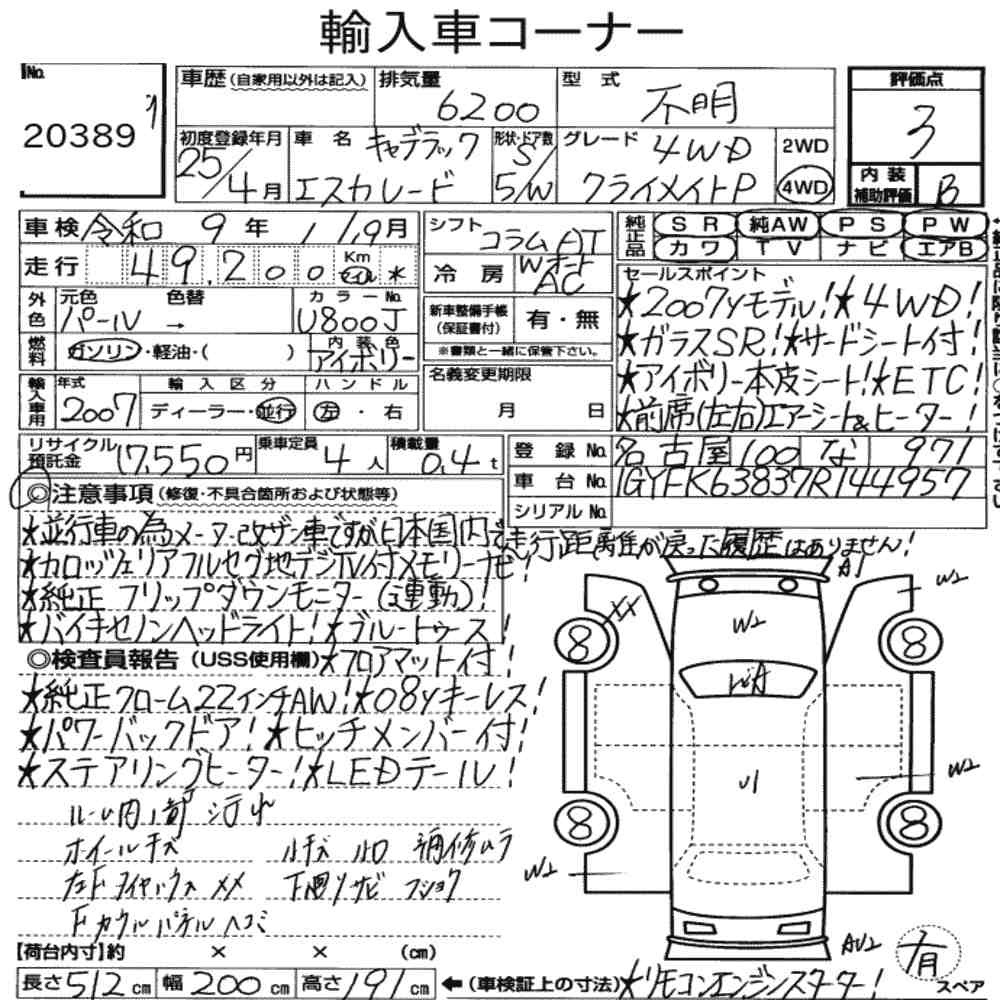 輸入車コーナー
No.
20389
車歴 (自家用以外は記入)
排気量 6200
型式 不明
評価点 3
内装補助評価 B
初度登録年月 25/4月
車名 キャデラック エスカレード
形状・ドア数 S/5/W
グレード 4WD クライメイトP
2WD
4WD
車検 令和 9年 11/19月
走行 49,200 Km マイル *
外色 元色 色替 カラーNo.
パール → U800J
燃料 ガソリン・軽油・( )
内装色 アイボリー
輸入車用 年式 2007
輸入区分 ディーラー・並行
ハンドル 左・右
シフト コラムAT
冷房 Wオート AC
新車整備手帳 (保証書付) 有・無
※書類と一緒に保管下さい。
名義変更期限
月 日
純正品 SR 純AW PS PW
カワ TV ナビ エアB
セールスポイント
★2007yモデル!★4WD!
★ガラスSR!★サードシート付!
★アイボリー本皮シート!★ETC!
★前席(左右)エアーシート&ヒーター!
リサイクル預託金 17,550円
乗車定員 4人
積載量 0.4t
登録No. 名古屋 100 な 971
車台No. 1GYFK63837R144957
シリアルNo.
◎注意事項 (修復・不具合箇所および状態等)
★並行車の為メーター改ザン車ですが日本国内で走行距離が戻った履歴はありません!
★カロッツェリアフルセグ地デジTV付メモリーナビ!
★純正フリップダウンモニター(連動)!
★バイキセノンヘッドライト!★ブルートゥース!
◎検査員報告 (USS使用欄) ★フロアマット付!
★純正クローム22インチAW!★08yキーレス!
★パワーバックドア!★ヒッチメンバー付!
★ステアリングヒーター!★LEDテール!
ルーム内/部 汚れ
ホイールキズ ルキズ 補修ムラ
左Fタイヤ メメ 下廻りサビ フショク
Fカウルパネルヘコミ
A1
W2
メメ
8
8
W2
W2
8
8
W2
AU2
有
スペア
【荷台内寸】約 × × (cm)
長さ512cm 幅200cm 高さ191cm ←(車検証上の寸法) ★リモコンエンジンスターター!